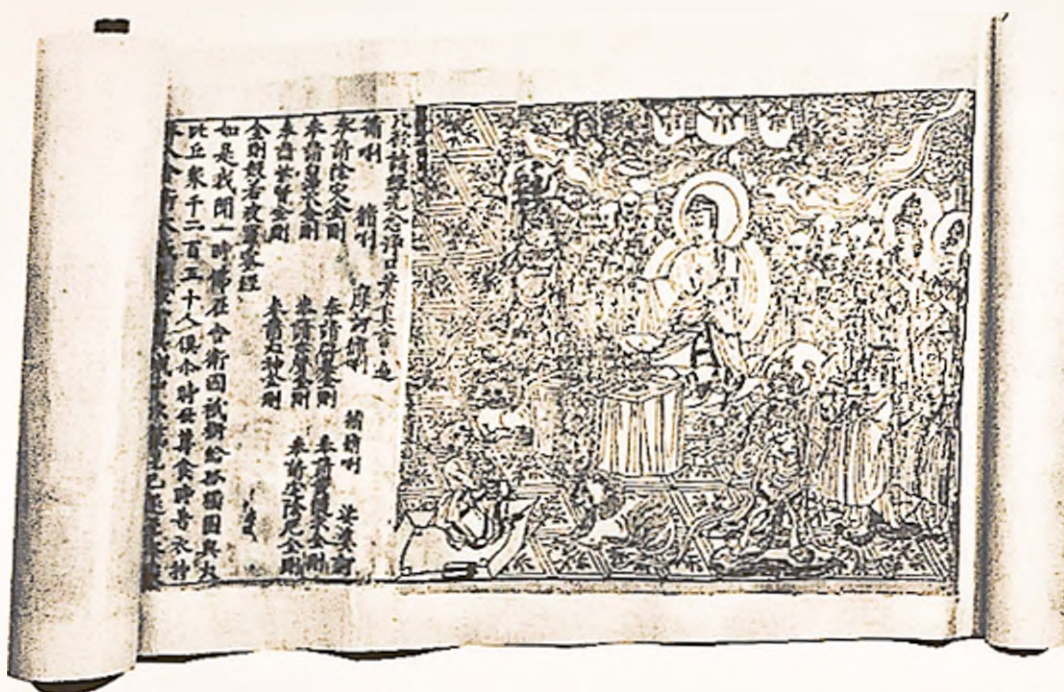 讀經先念淨口業真言一遍
脩唎 脩唎 摩訶脩唎 脩脩唎 娑婆訶
奉請除災金剛 奉請辟毒金剛 奉請黃隨求金剛
奉請白淨水金剛 奉請赤聲金剛 奉請定除厄金剛
奉請紫賢金剛 奉請大神金剛
金剛般若波羅蜜經
如是我聞一時佛在舍衛國祇樹給孤獨園與大
比丘眾千二百五十人俱尒時世尊食時著衣持